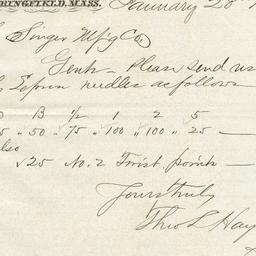 RINGFIELD, MASS. January 28
Singer Mfg Co
Gents - Please send us
needles as follows
B 1/2 1 2 5
5 " 50 " 75 " 100 " 100 " 25 -
also
√25 No. 2 Twist points -
Yours truly
Theo L Hay